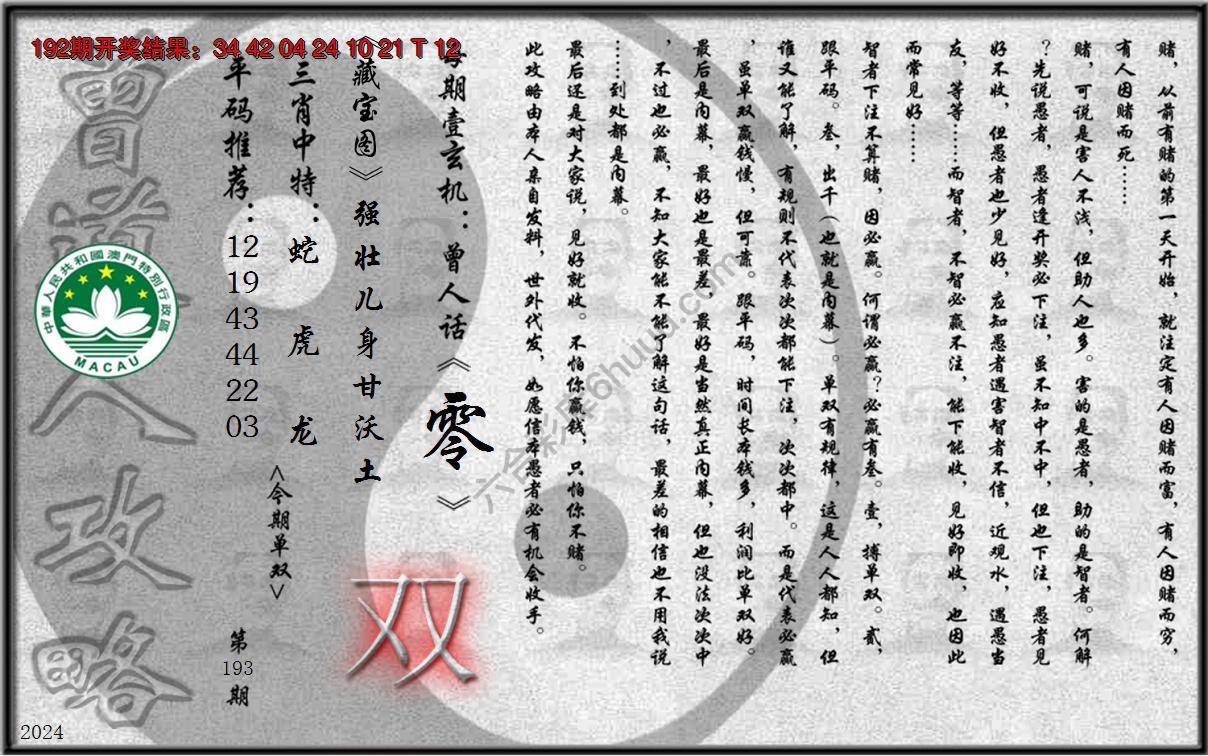 192期开奖结果：34 42 04 24 10 21 T 12
赌，从前有赌的第一天开始，就注定有人因赌而富，有人因赌而穷，
有人因赌而死……
赌，可说是害人不浅，但助人也多。害的是愚者，助的是智者。何解
？先说愚者，愚者逢开奖必下注，虽不知中不中，但也下注，愚者见
好不收，但愚者也少见好，应知愚者遇害智者不信，近观水，遇愚当
友，等等……而智者，不智必赢不注，能下能收，见好即收，也因此
而常见好……
智者下注不算赌，因必赢。何谓必赢？必赢有叁。壹，搏单双。贰，
跟平码。叁，出千（也就是内幕）。单双有规律，这是人人都知，但
谁又能了解，有规则不代表次次都能下注，次次都中。而是代表必赢
，虽单双赢钱慢，但可靠。跟平码，时间长本钱多，利润比单双好。
最后是内幕，最好也是最差，最好是当然真正内幕，但也没法次次中
，不过也必赢，不知大家能不能了解这句话，最差的相信也不用我说
……到处都是内幕。
最后还是对大家说，见好就收。不怕你赢钱，只怕你不赌。
此攻略由本人亲自发料，世外代发，如愿信本愚者必有机会收手。
每期壹玄机：曾人话《零》
《藏宝图》强壮儿身甘沃土
双
三肖中特：蛇 虎 龙
<今期单双>
平码推荐：
12
19
43
44
22
03
第
193
期
曾道人攻略
中華人民共和國澳門特別行政區
MACAU
六合彩库6huuu.com
2024